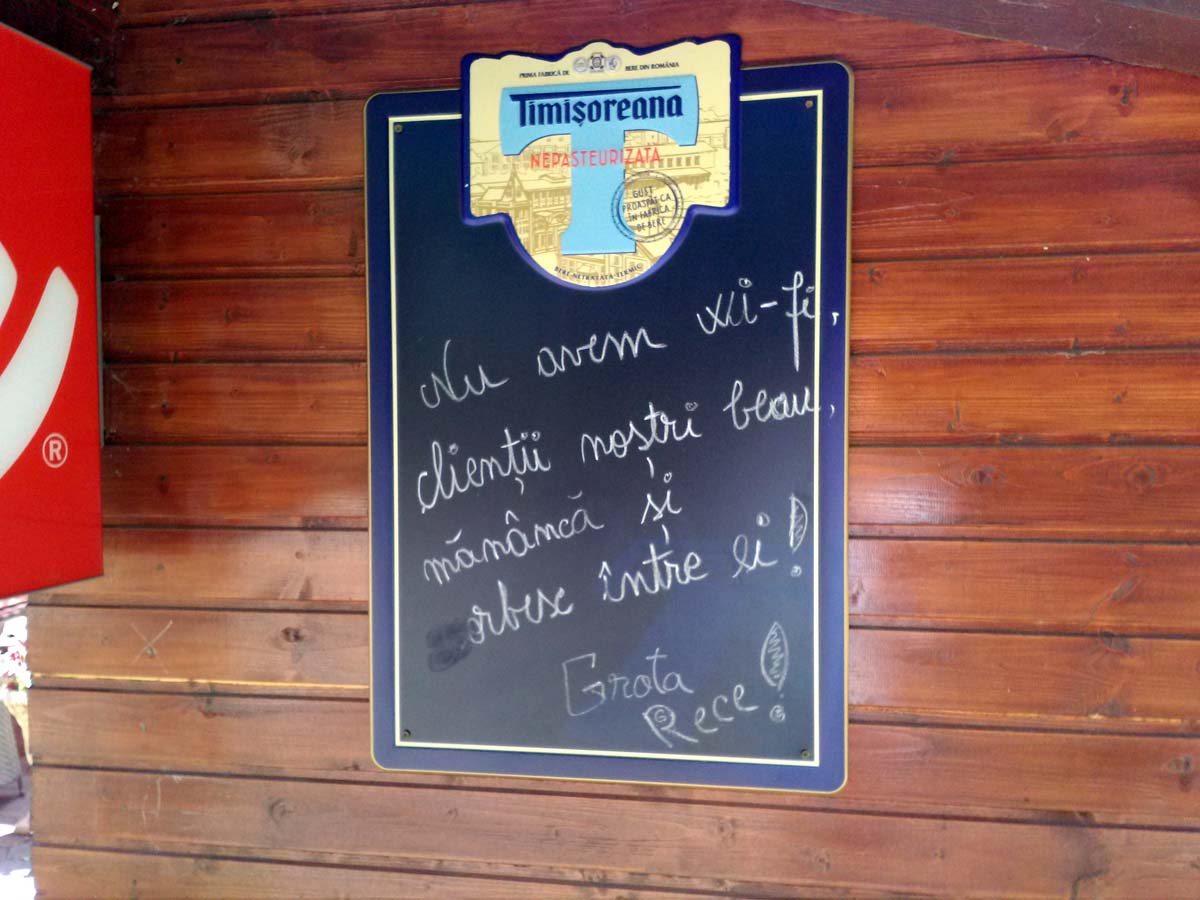 PRIMA FABRICĂ DE BERE DIN ROMÂNIA
Timișoreana
NEPASTEURIZATĂ
GUST
PROASPĂT CA
ÎN FABRICA
DE BERE
BERE NETRATATĂ TERMIC
Nu avem wi-fi,
clienții noștri beau,
mănâncă și
orbesc între ei!
Grota
Rece!
®